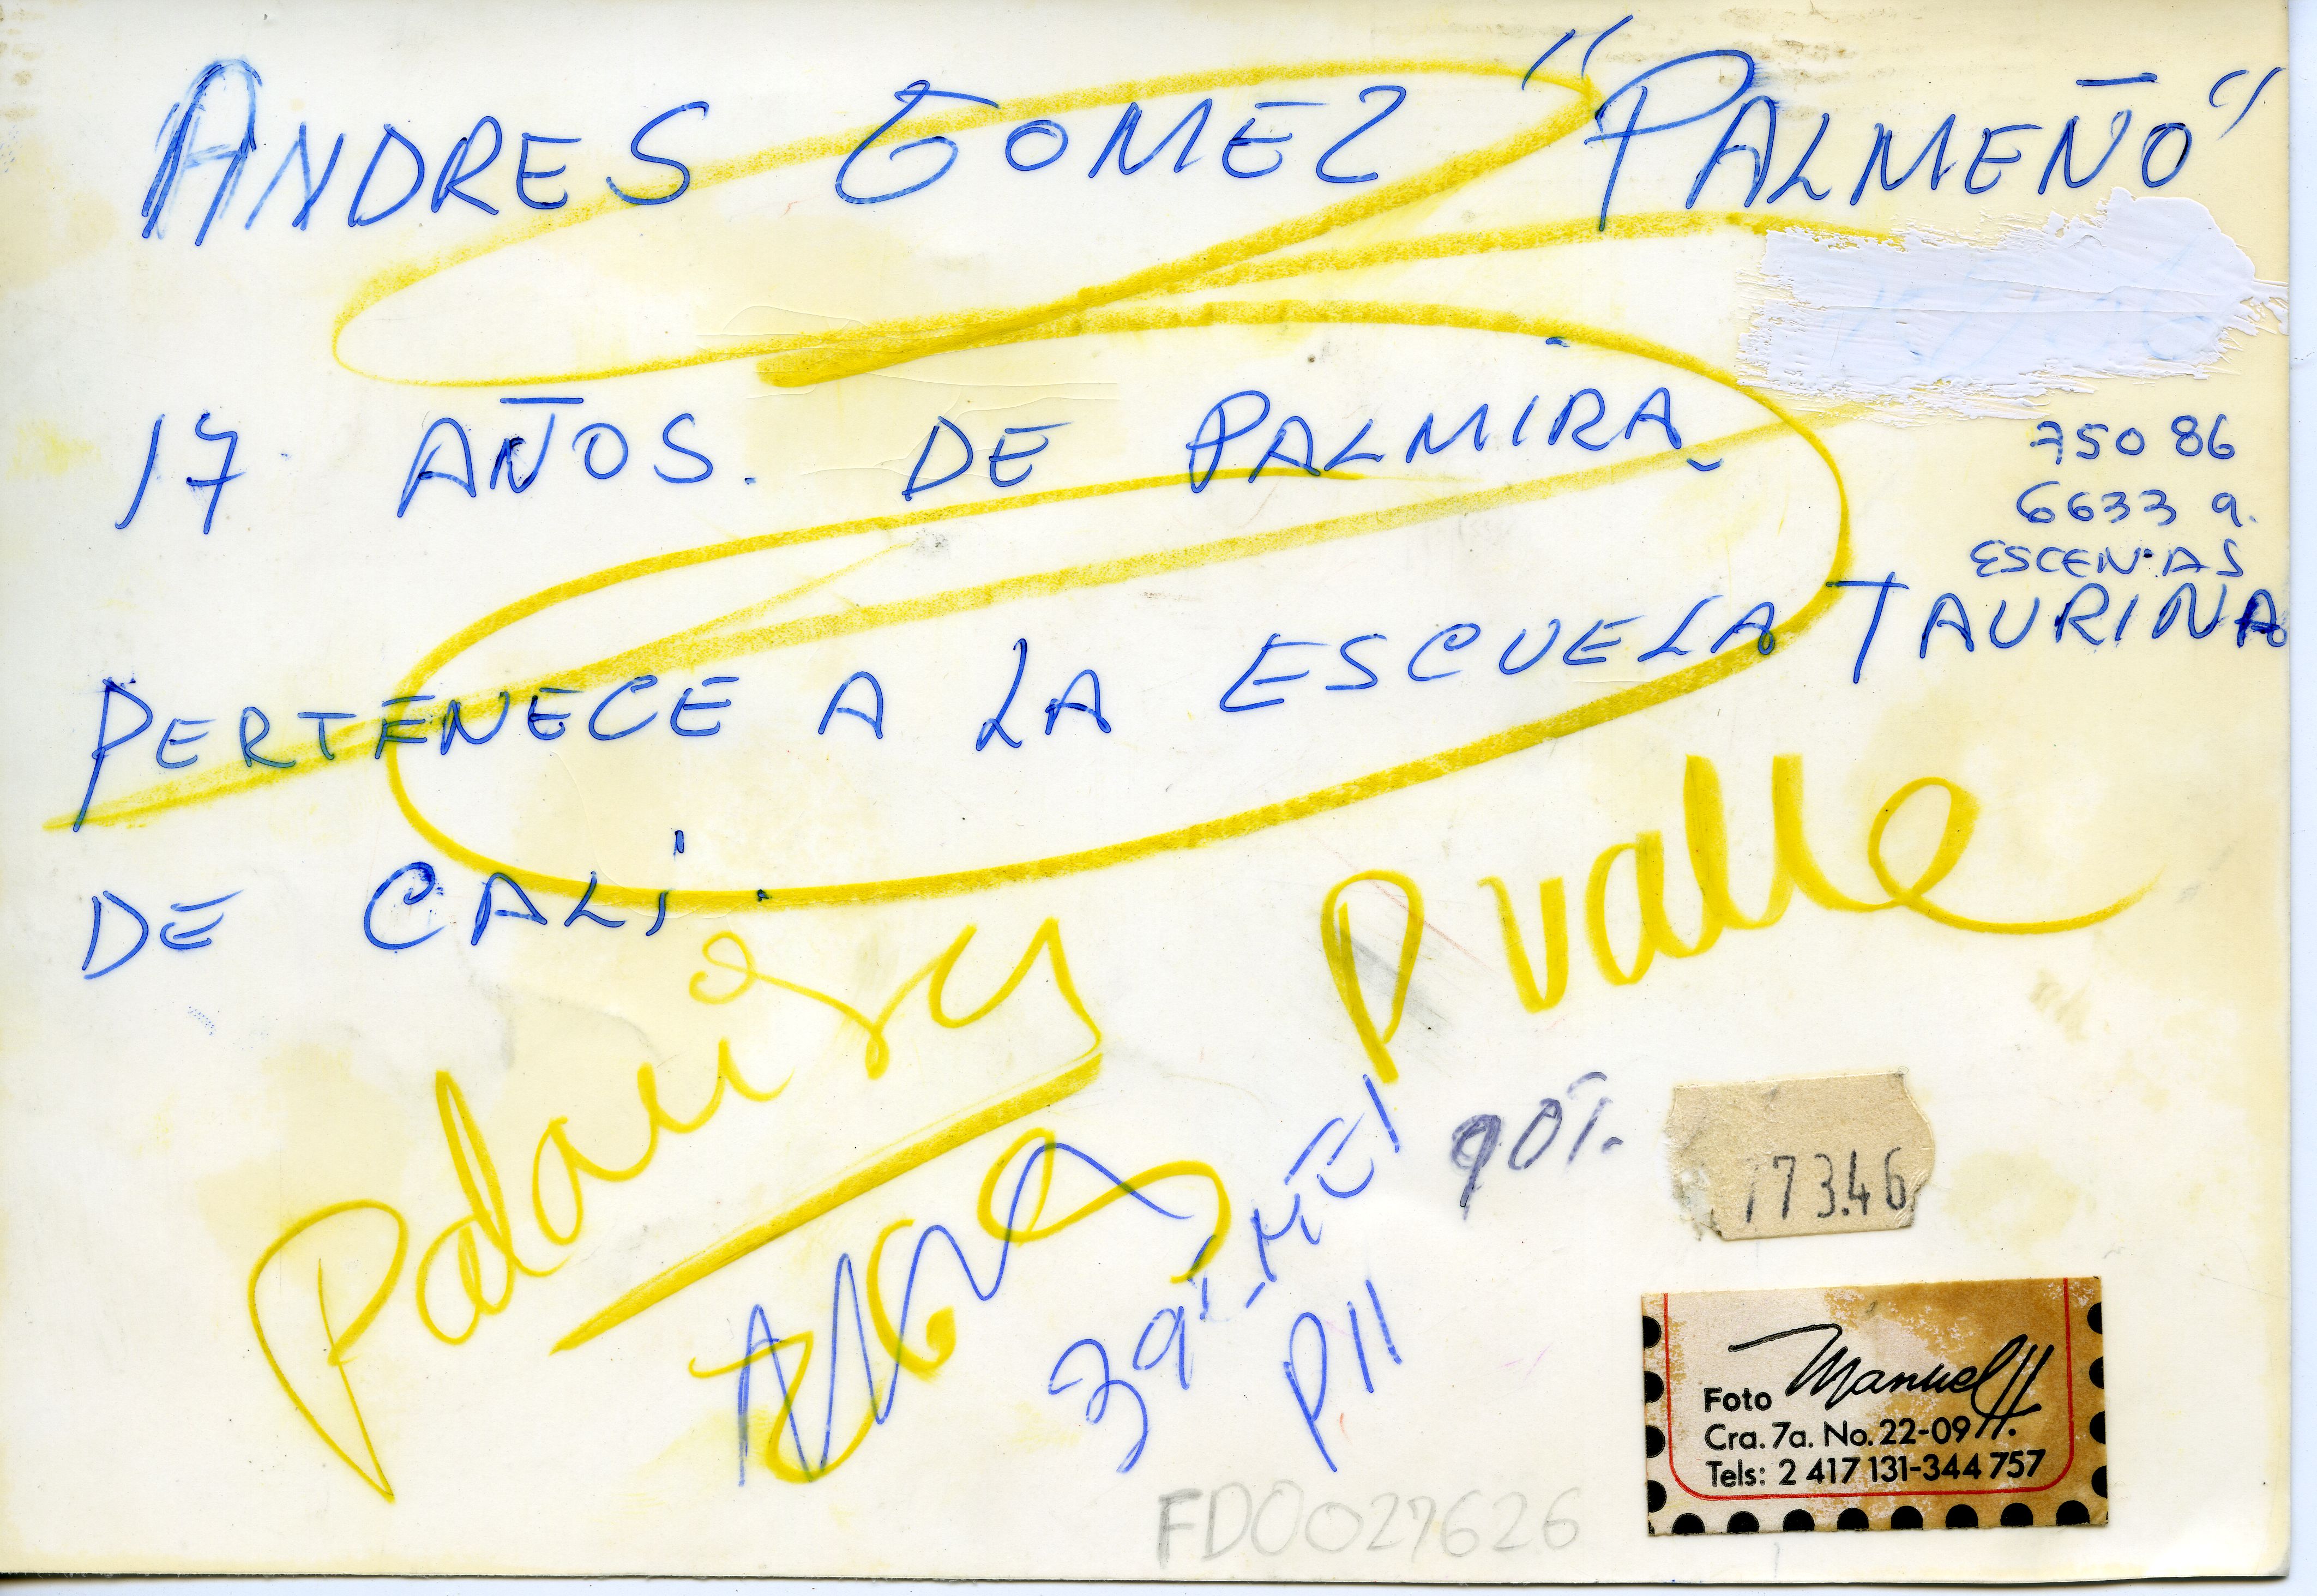 ANDRES GOMEZ "PALMEÑO"
17 AÑOS. DE PALMIRA
750 86
6633 9.
ESCENAS
PERTENECE A LA ESCUELA TAURINA
DE CALI.
P valle
Palmira
P11
773.46
Foto Manuel H.
Cra. 7a. No. 22-09
Tels: 2 417 131-344 757
FD0027626